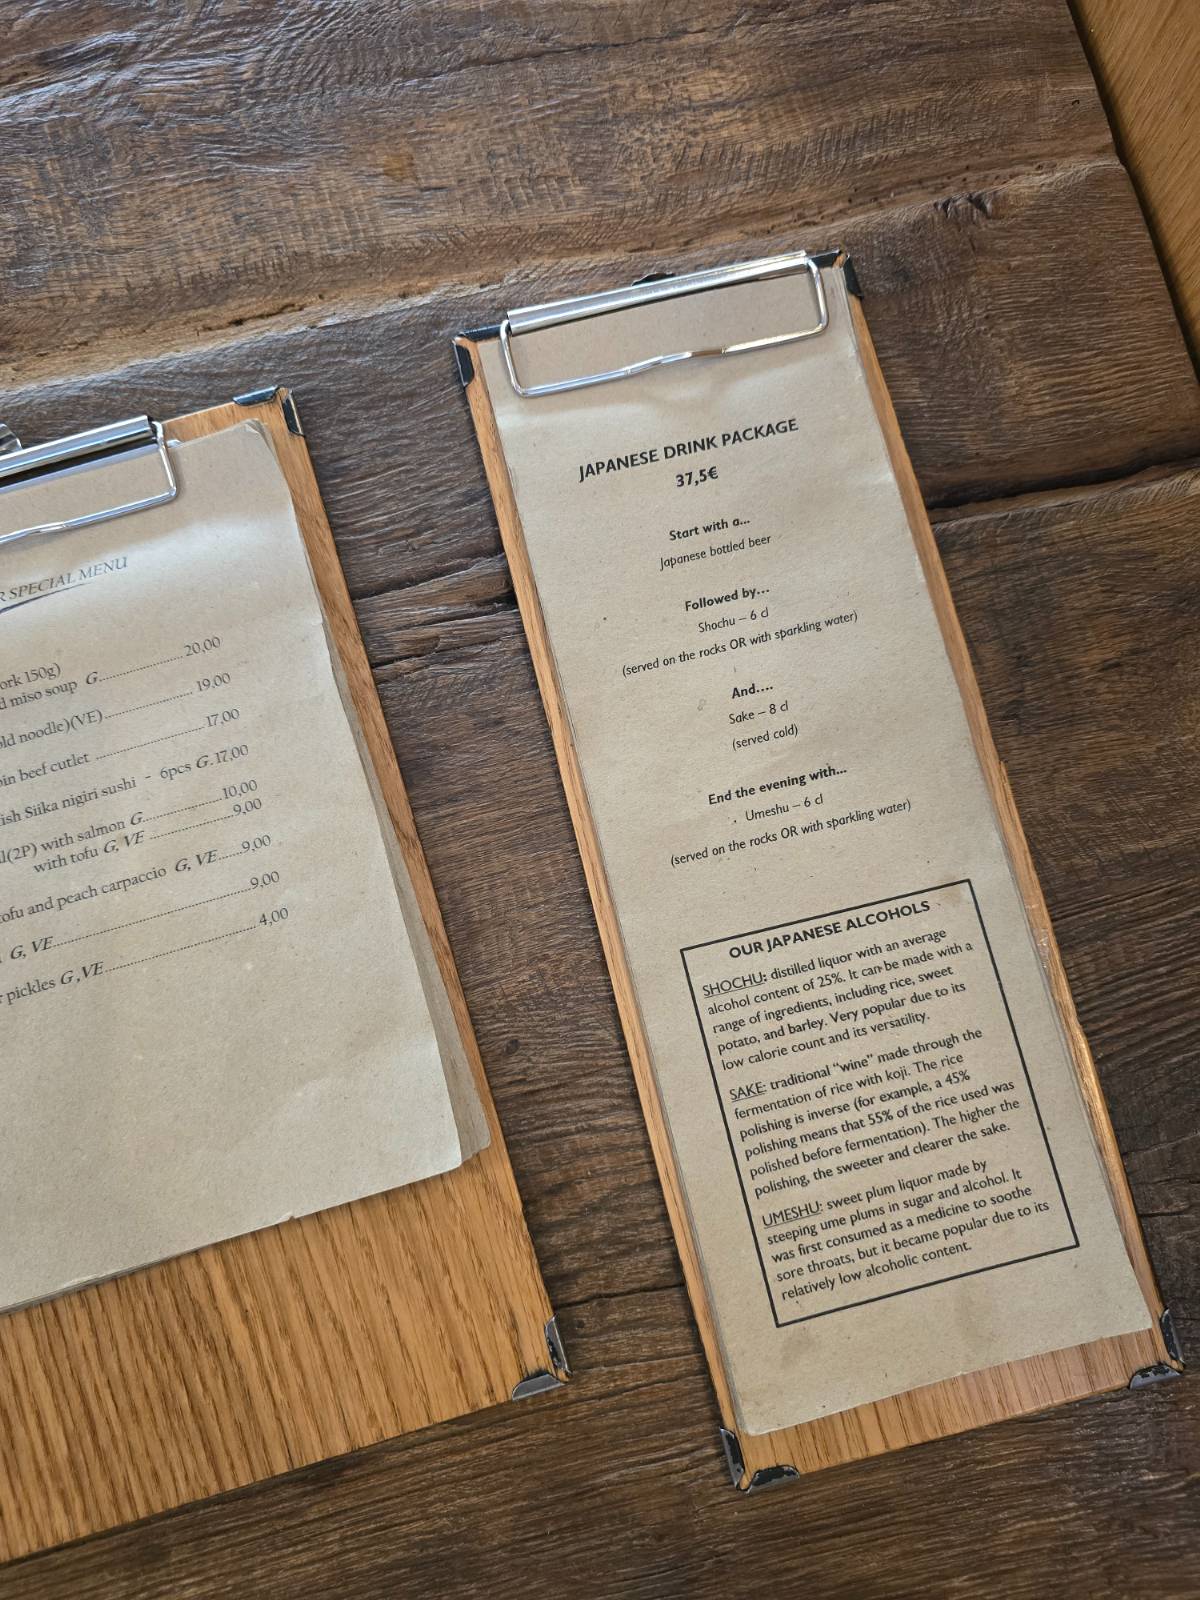 SPECIAL MENU
150g)
miso soup G..........................20,00
noodle)(VE)......................... 19.00
beef cutlet ................................17,00
Siika nigiri sushi - 6pcs G.17,00
(2P) with salmon G......................10,00
with tofu G, VE ........................9,00
and peach carpaccio G, VE.......9,00
G, VE..................................................9,00
pickles G ,VE....................................... 4,00
JAPANESE DRINK PACKAGE
37,5€
Start with a...
Japanese bottled beer
Followed by...
Shochu – 6 cl
(served on the rocks OR with sparkling water)
And....
Sake – 8 cl
(served cold)
End the evening with...
Umeshu – 6 cl
(served on the rocks OR with sparkling water)
OUR JAPANESE ALCOHOLS
SHOCHU: distilled liquor with an average
alcohol content of 25%. It can be made with a
range of ingredients, including rice, sweet
potato, and barley. Very popular due to its
low calorie count and its versatility.
SAKE: traditional "wine" made through the
fermentation of rice with koji. The rice
polishing is inverse (for example, a 45%
polishing means that 55% of the rice used was
polished before fermentation). The higher the
polishing, the sweeter and clearer the sake.
UMESHU: sweet plum liquor made by
steeping ume plums in sugar and alcohol. It
was first consumed as a medicine to soothe
sore throats, but it became popular due to its
relatively low alcoholic content.